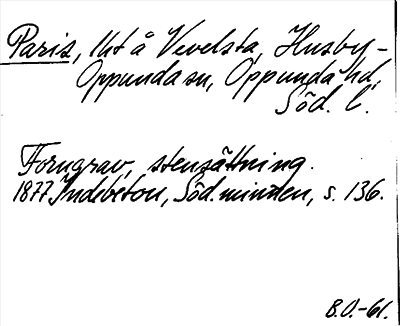 Paris, lht å Vevelsta, Husby-
Oppunda sn, Oppunda hd,
Söd. l.
Forngrav, stensättning.
1877 Indebetou, Söd. minnen, s. 136.
B.O.-61.